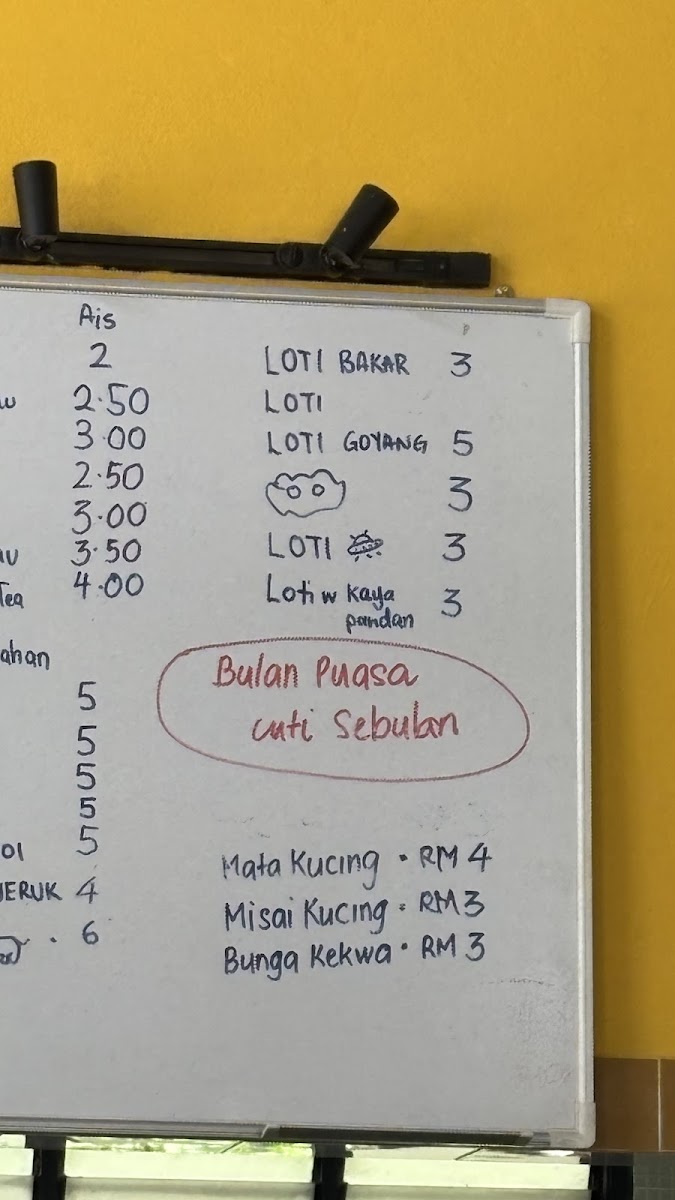 Ais
2
2.50
3.00
2.50
3.00
3.50
Tea 4.00
ahan
5
5
5
5
5
JERUK 4
6
LOTI BAKAR 3
LOTI
LOTI GOYANG 5
3
LOTI 3
Loti w kaya
pandan 3
Bulan Puasa
cuti Sebulan
Mata Kucing • RM 4
Misai Kucing • RM 3
Bunga Kekwa • RM 3